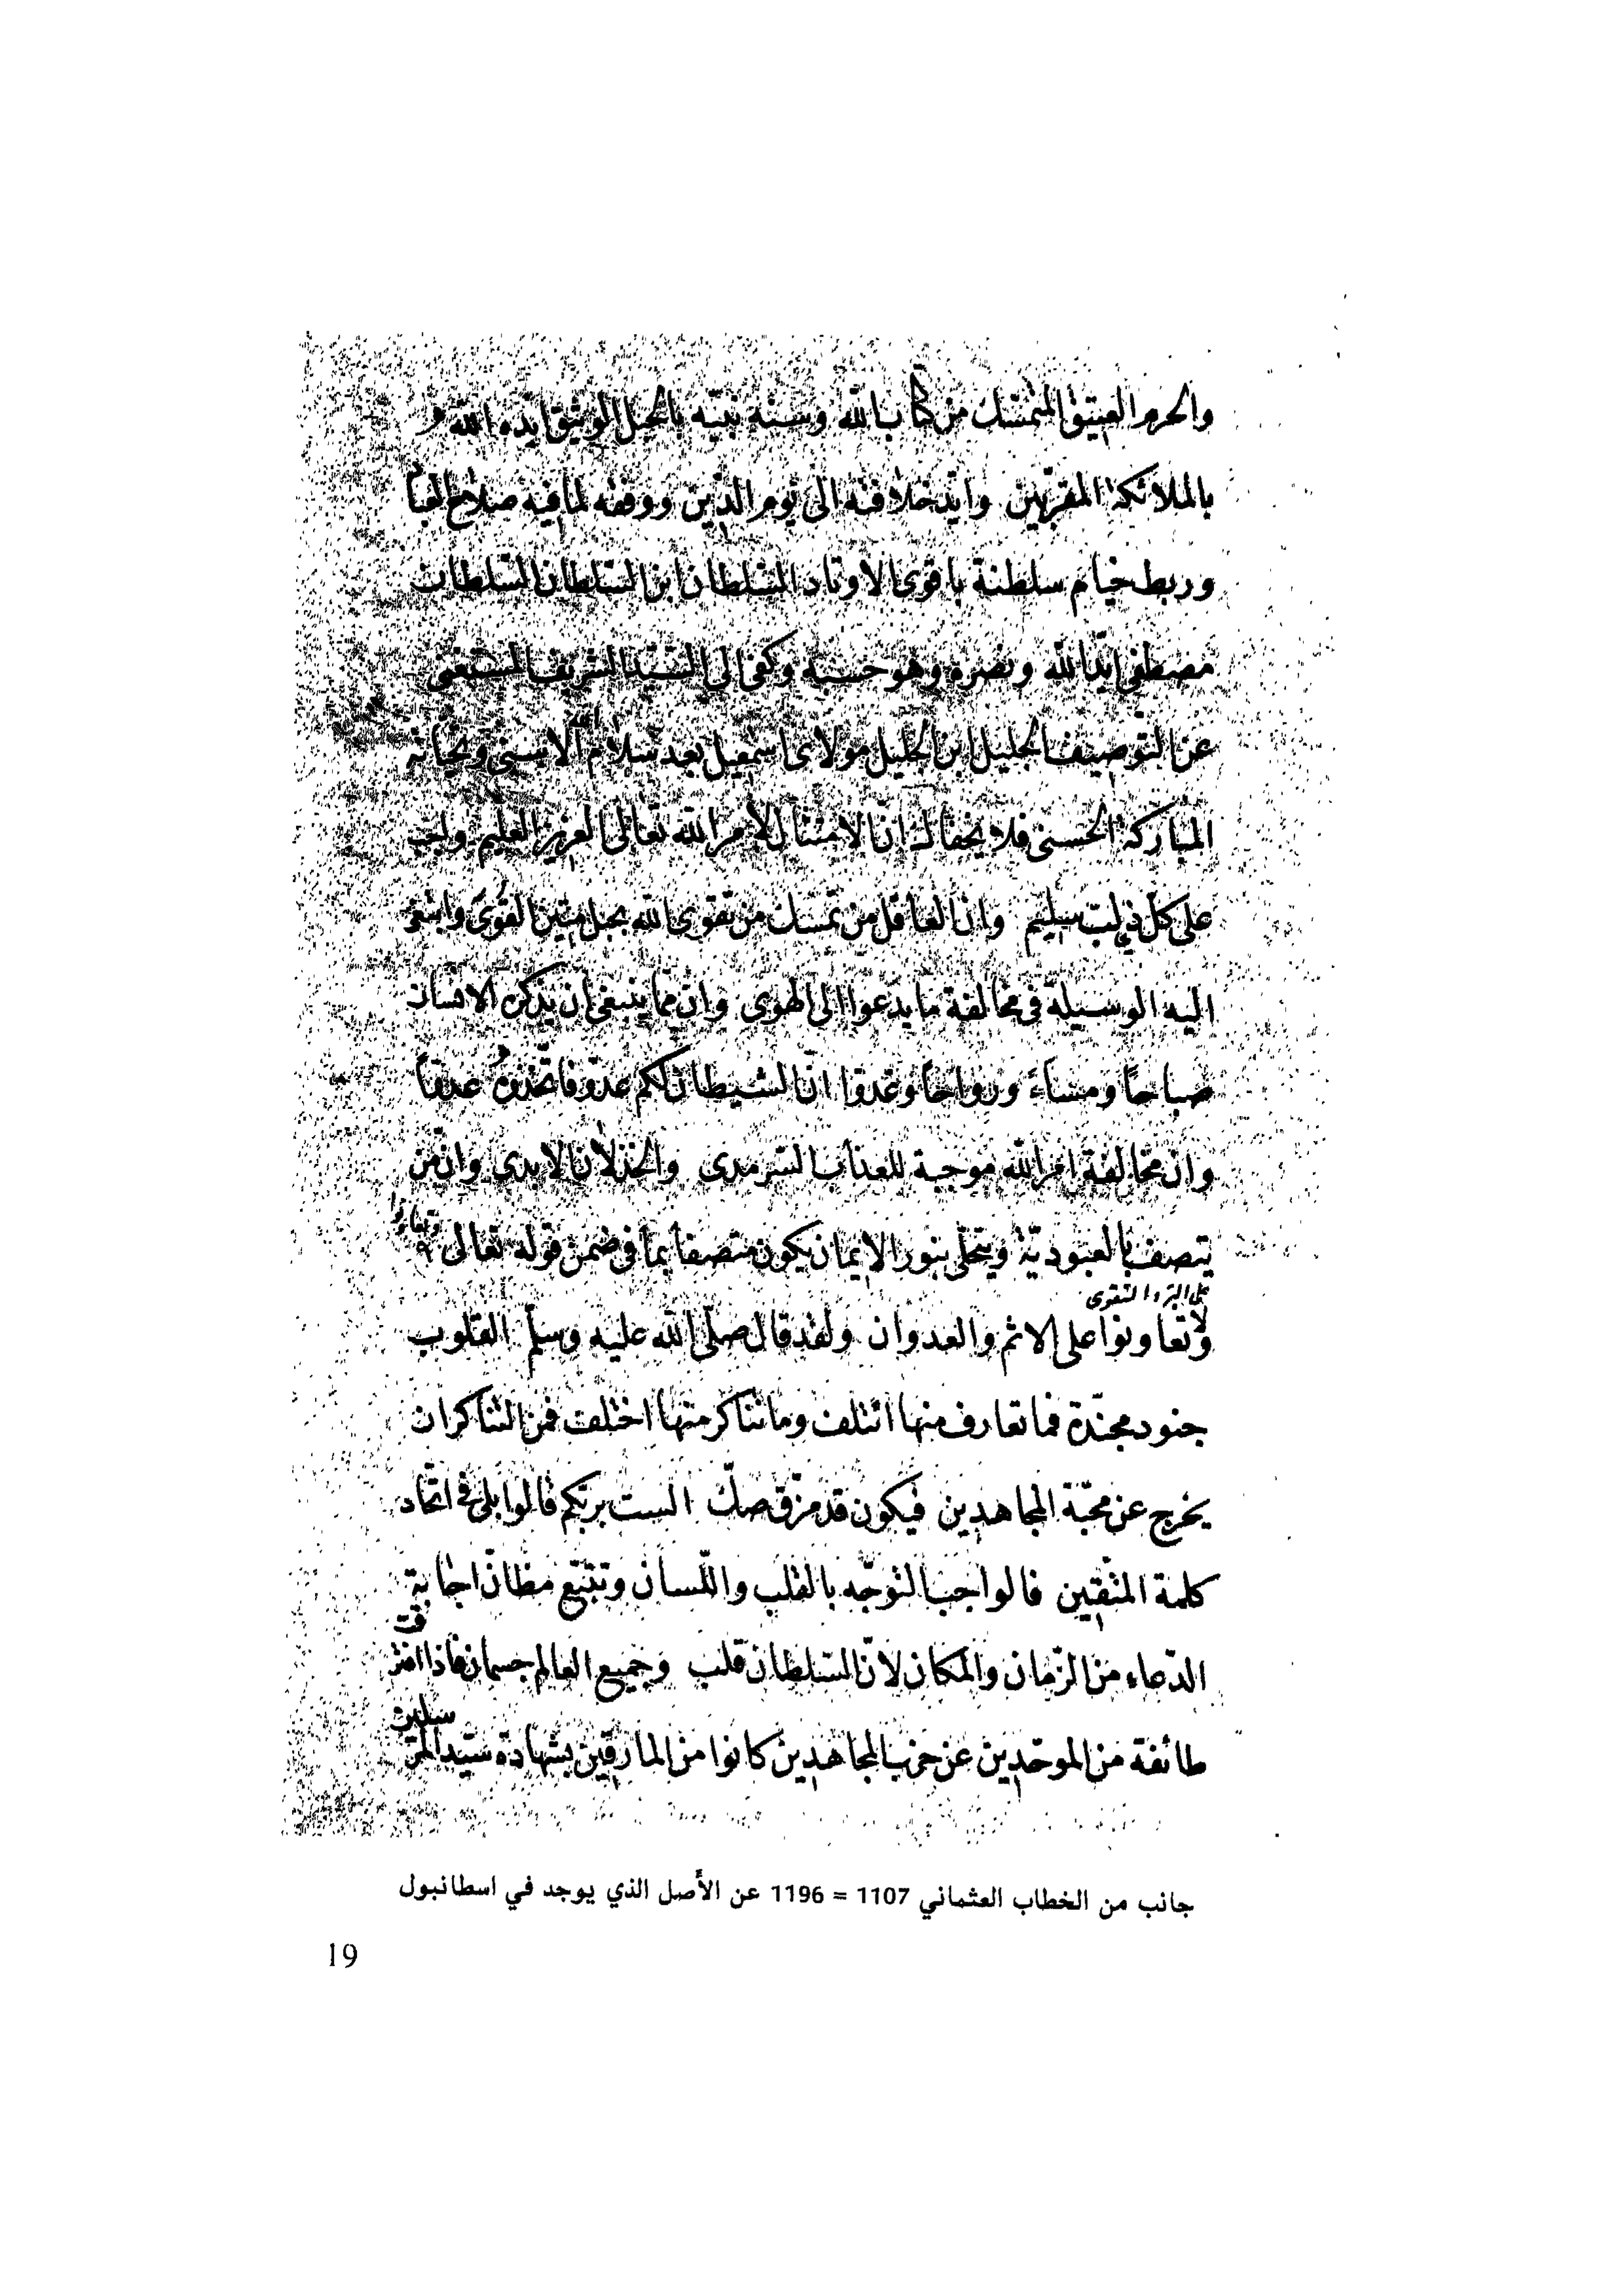 والحرم العتيق المتمسّك من كتاب الله وسنة نبيّه بالحبل الوثيق ايّده الله
بالملائكة المقرّبين وايّد خلافته الى يوم الدّين ووفقه لما فيه صلاح العباد
وربط خيام سلطنة باقوى الاوتاد السّلطان ابن السّلطان السّلطان
مصطفى ايّد الله ونصره وهو حسبه وكفى الى السّيّد الشريف المستغنى
عن التوصيف الجليل ابن الجليل مولاى اسمعيل بعد سلام الله الاسنى وتحيّاته
المباركة الحسنى فلا يخفاك انّ الامتثال لأمر الله تعالى العزيز العليم واجب
على كلّ ذى لبّ سليم وانّ العاقل من تمسّك من تقوى الله بحبل متين القُوَى وابتغى
اليه الوسيلة فى مخالفة ما يدعوا الى الهوى وانّ ممّا ينبغى ان يذكره الانسان
صباحًا ومساءً ورواحًا وغدوّا انّ الشيطان لكم عدوّ فاتّخذوهُ عدوّا
وانّ مخالفة امر الله موجبة للعذاب السّرمدى والخذلان الابدى وانّ من
يتصف بالعبوديّة ويتحلّى بنور الايمان يكون متصفا بما فى ضمن قوله تعالى وتعاونوا
على البرّ والتقوى
ولا تعاونوا على الاثم والعدوان ولقد قال صلّى الله عليه وسلّم القلوب
جنود مجنّدة فما تعارف منها ائتلف وما تناكر منها اختلف فمن التناكر ان
يخرج عن محبّة المجاهدين فيكون قد مزّق صكّ الست بربّكم قالوا بلى فى اتّحاد
كلمة المتّقين فالواجب التوجّه بالقلب واللّسان وتتبّع مظانّ اجابة
الدّعاء من الزّمان والمكان لانّ السّلطان قلب وجميع العالم جسمان فاذا افترقت
طائفة من الموحّدين عن حزب المجاهدين كانوا من المارقين بشهادة سيّد المرسلين
جانب من الخطاب العثماني 1107 = 1196 عن الأصل الذي يوجد في اسطانبول
19